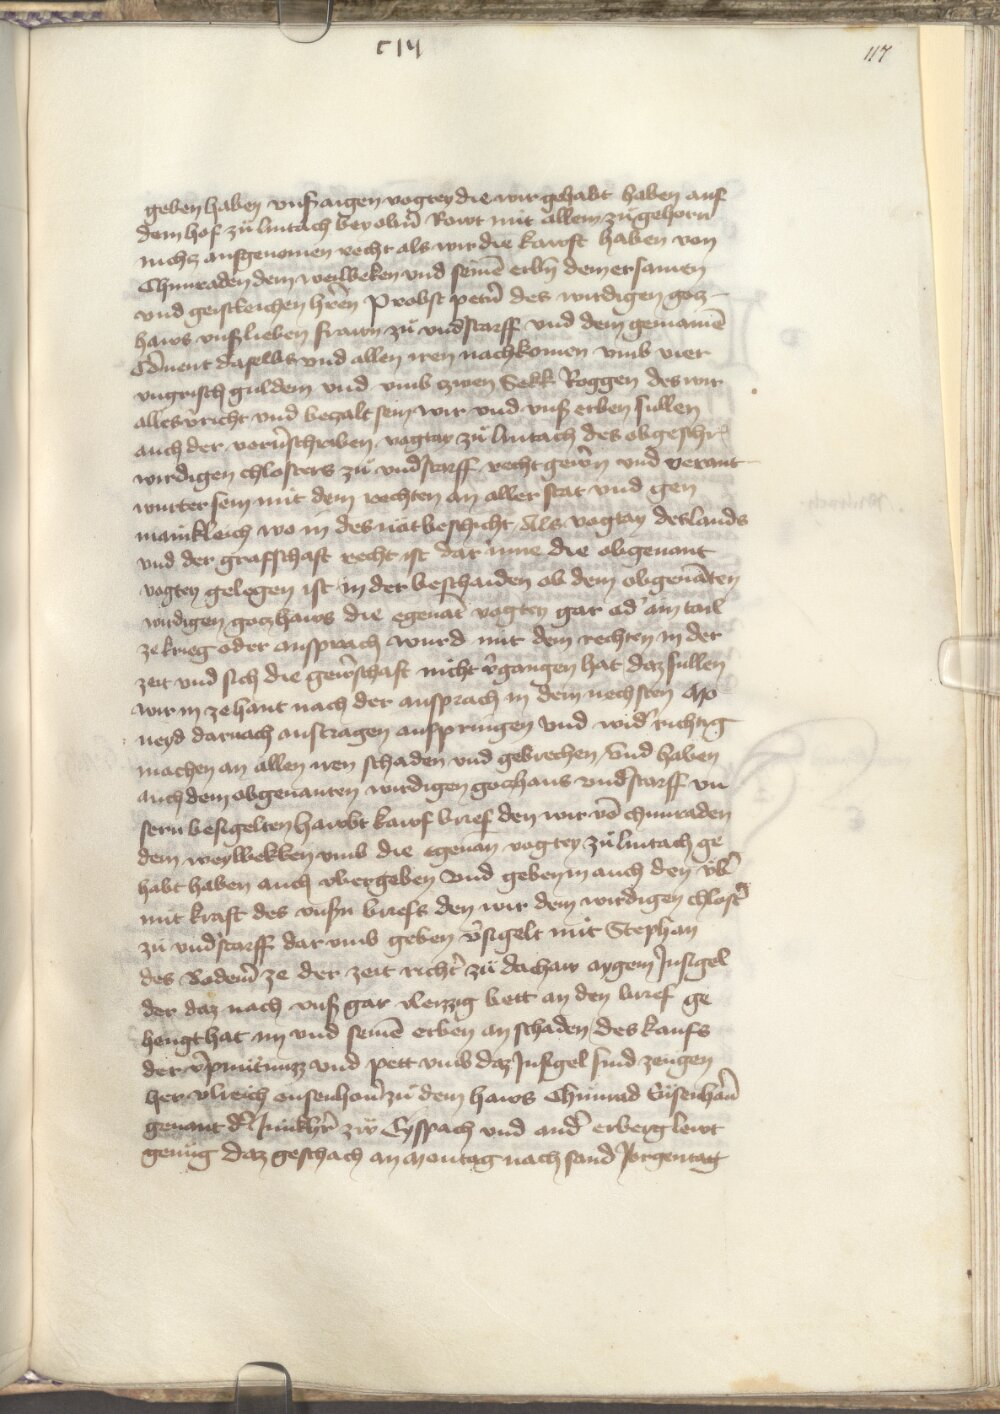 c 14
117
geben haben unß aigen vogtey die wir gehabt haben auf
dem hof zů lintach bey obn̄ Rawt mit allem zůgehorn
nichcz ausgenomen recht als wir die kawft haben von
Chunraden dem weilbeken vnd seinē erbn̄ dem ersamen
vnd geistleichen hr̄en Probst petn̄ des wirdigen gocz
haws vnß lieben frawn zů vndstarff vnd dem gemainē
Cōuent daselbs vnd allen iren nachkomen vmb vier
vngrisch guldein vnd vmb zwen Sekk Roggen des wir
alles v̄richt vnd beczalt sein wir vnd vnß erben sullen
auch der vorn̄schriben vogtay zů lintach des obgeschr̄
wirdigen chlosters zů vndstarff recht gew̄n vnd verant
wurter sein mit dem rechten an aller stat vnd gen
mainkleich wo in des nat beschicht Als vogtay des lands
vnd der grafschaft recht ist dar inne die obgenant
vogtey gelegen ist in der beschaiden ob dem obgenāten
wirdigen goczhaws die egenāt vogtey gar od' ain tail
ze krieg oder ansprach wurd mit dem rechten in der
zeit vnd sich die gew̄schaft nicht v̄gangen hat daz sullen
wir in ze hant nach der ansprach in dem nechsten Mo
neyd darnach austragen auspringen vnd wid' richtig
machen an allen iren schaden vnd gebrechen vnd haben
auch dem obgenanten wirdigen goczhaus vndstarff vn
sern besigelten hawbt kawf brief den wir vō chunraden
dem weylbekken vmb die egenan̄ vogtey zů lintach ge
habt haben auch vbergeben vnd geben in auch den v̈b'
mit kraft des vnsn̄ briefs den wir dem wirdigen chlost'
zů vndstarff dar vmb geben v̄sigelt mit Stephan
des Radem̄ ze der zeit richt' zů dachaw aygem Insigel
der daz nach vnß gar vleizzig bett an den brief ge
hengt hat im vnd seinē erben an schaden des kaufs
der v̄pintung vnd pett vmb daz Insigel sind zeugen
her vlreich eusenhouē zů dem haws Chůnrad Eisenhou'
genant d' Iunkh'r zu Eysspach vnd and' erberg lewt
genůg daz geschach an Montag nach sand Iorgentag